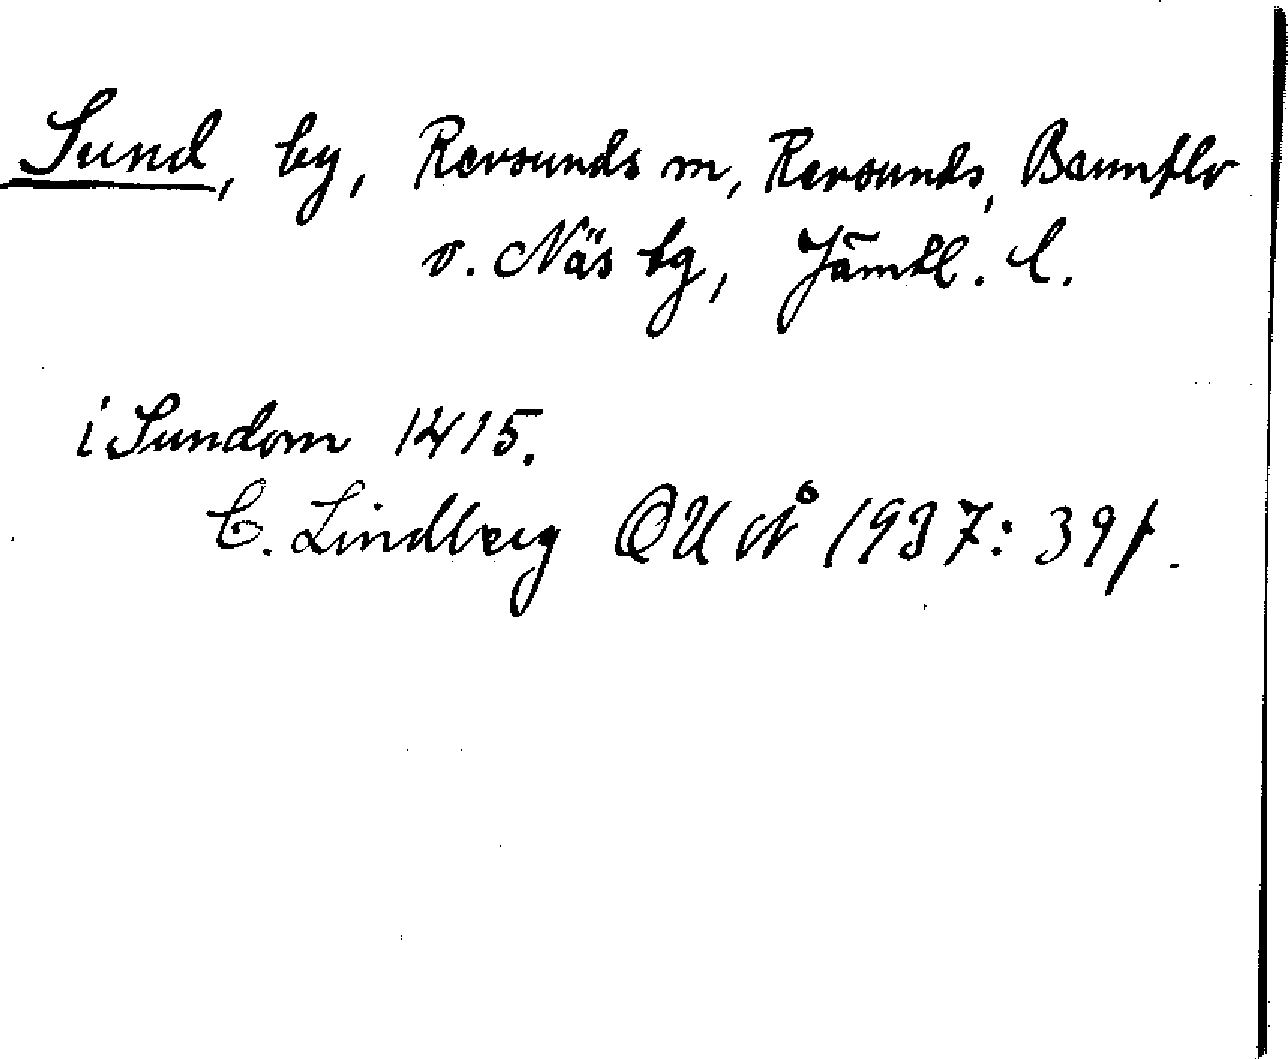 Sund, by, Revsunds m, Revsunds, Brunflo
o. Näs tg, Jämtl. l.
i Sundom 1415.
C. Lindberg OUÅ 1937: 39 f.